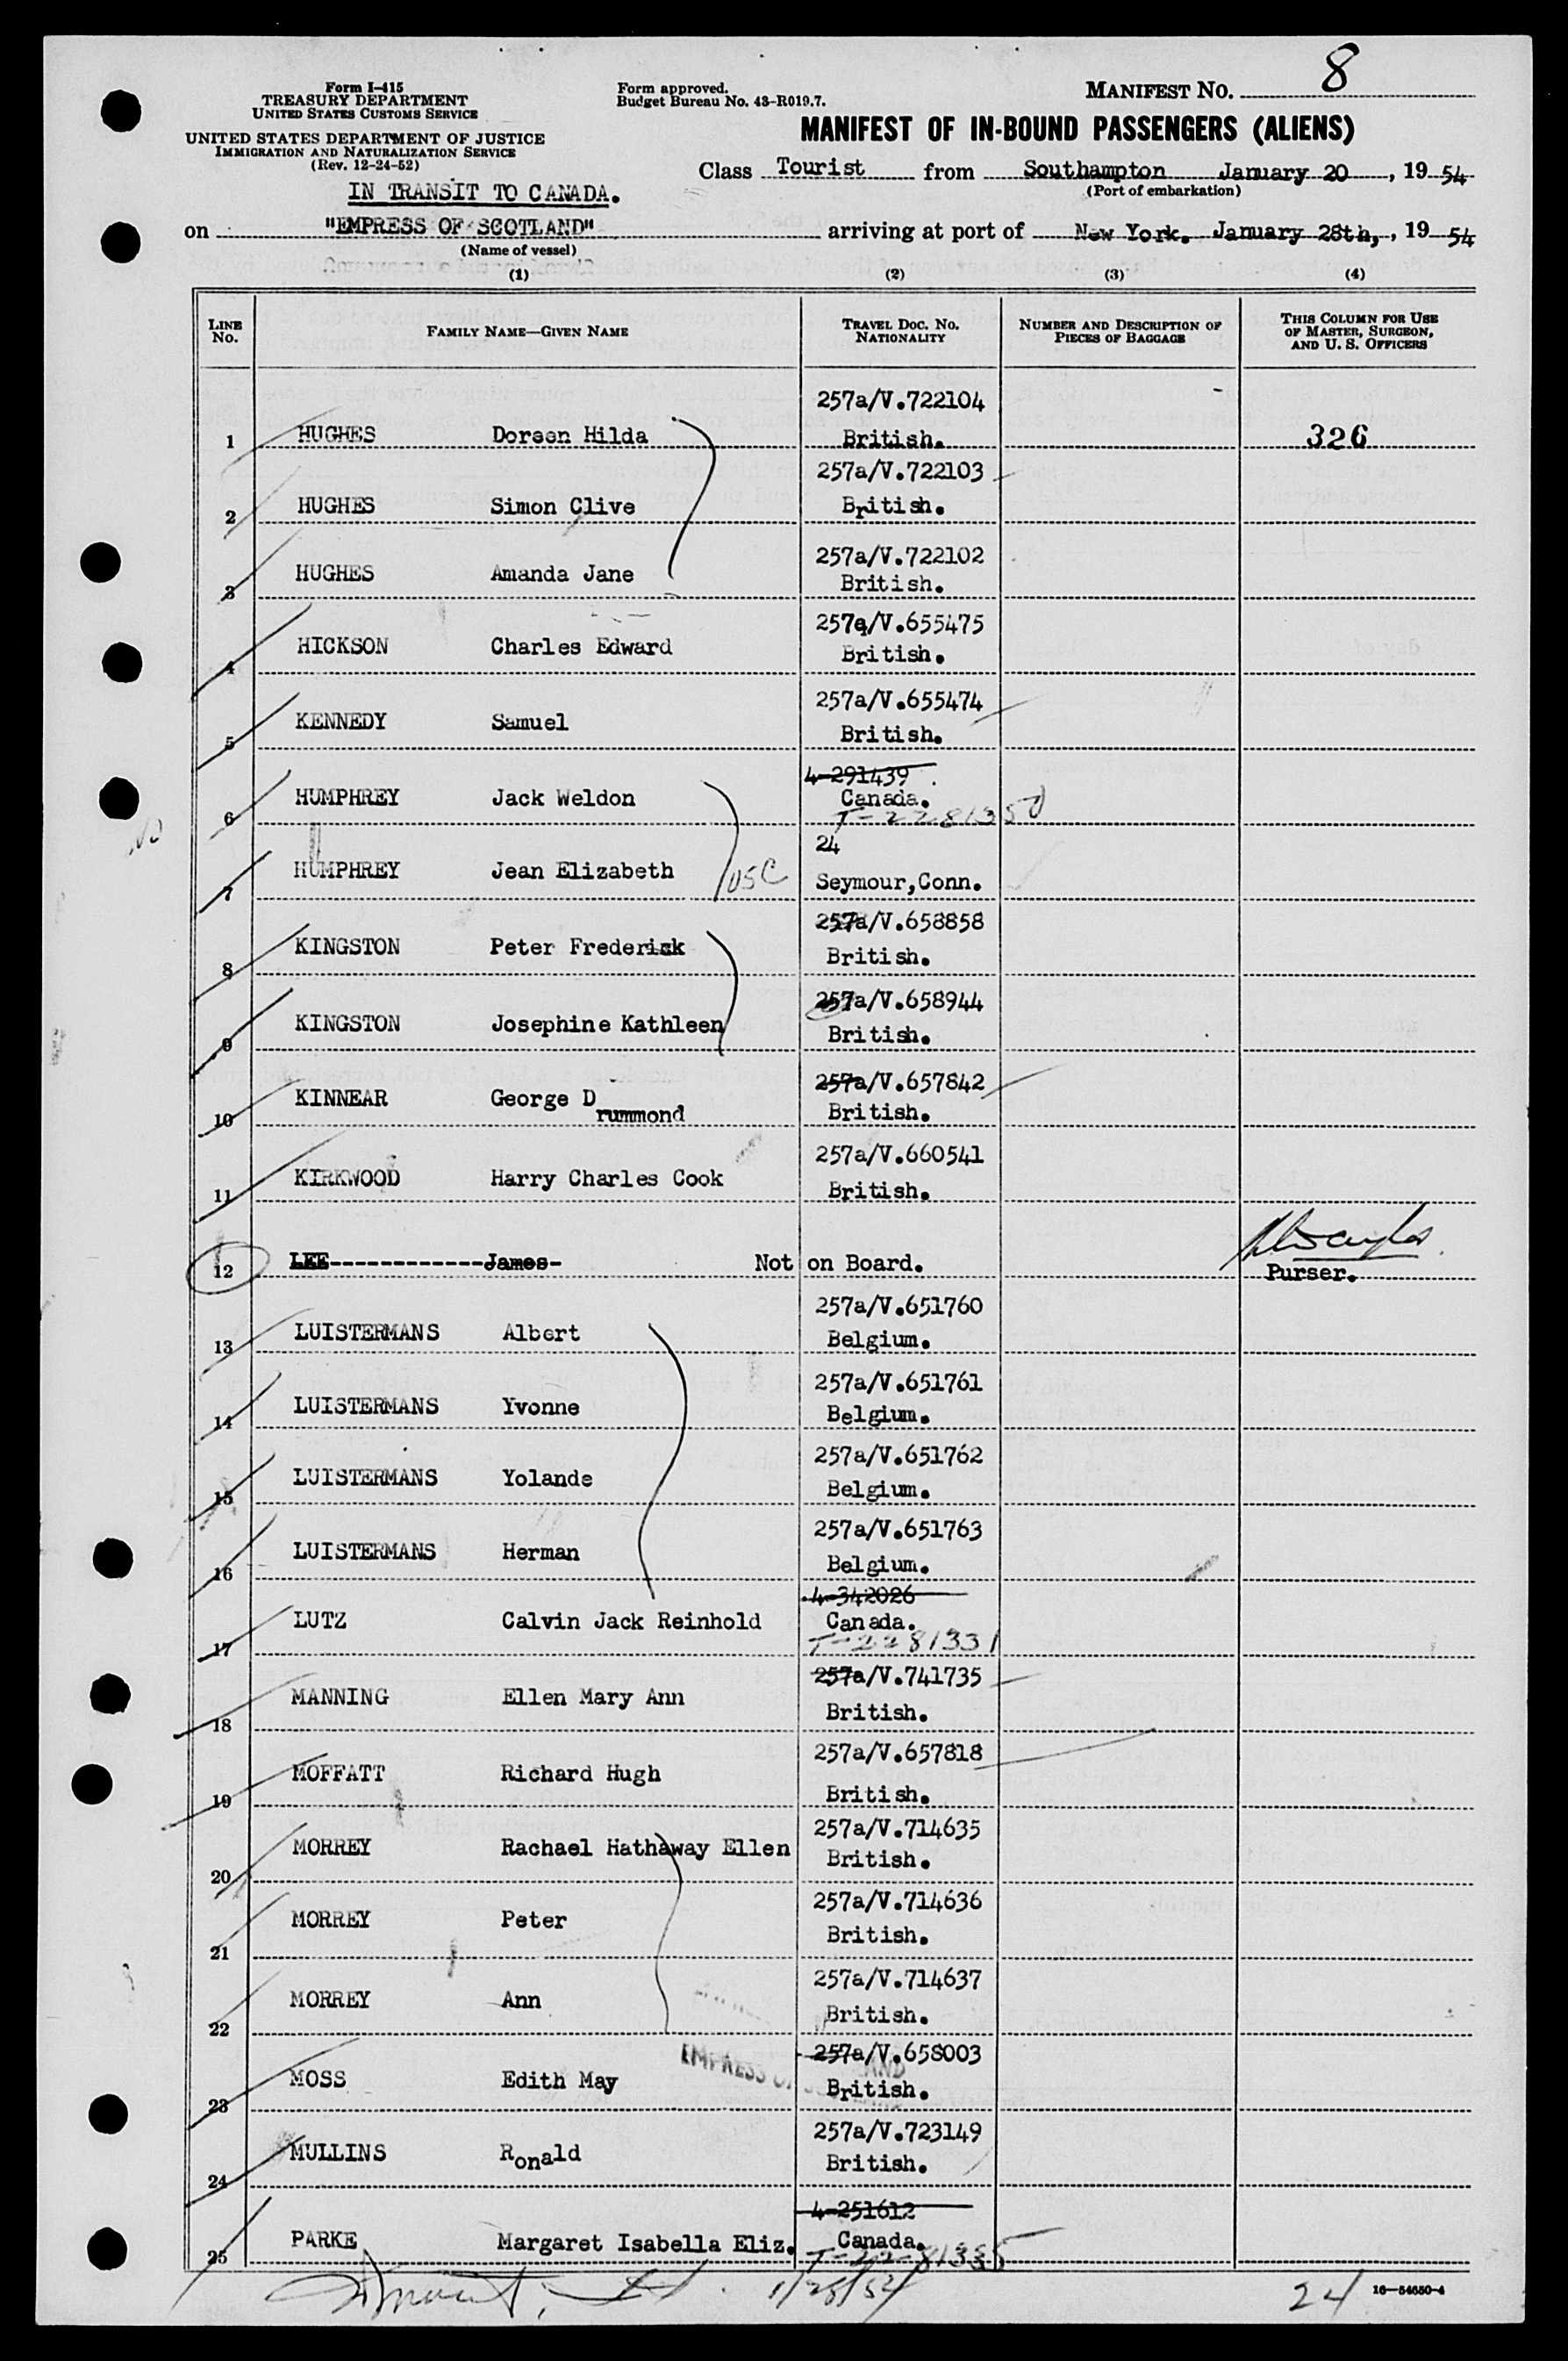 Form I-415
TREASURY DEPARTMENT
UNITED STATES CUSTOMS SERVICE
UNITED STATES DEPARTMENT OF JUSTICE
IMMIGRATION AND NATURALIZATION SERVICE
(Rev. 12-24-52)
Form approved.
Budget Bureau No. 43-R019.7.
MANIFEST NO. 8
MANIFEST OF IN-BOUND PASSENGERS (ALIENS)
Class Tourist from Southampton January 20, 1954
(Port of embarkation)
IN TRANSIT TO CANADA.
on "EMPRESS OF SCOTLAND" arriving at port of New York. January 28th, , 1954
(Name of vessel)
(1) (2) (3) (4)
LINE No. FAMILY NAME—GIVEN NAME TRAVEL DOC. NO. NATIONALITY NUMBER AND DESCRIPTION OF PIECES OF BAGGAGE THIS COLUMN FOR USE OF MASTER, SURGEON, AND U. S. OFFICERS
257a/V.722104
1 HUGHES Doreen Hilda British. 326
257a/V.722103
2 HUGHES Simon Clive British.
257a/V.722102
3 HUGHES Amanda Jane British.
257a/V.655475
4 HICKSON Charles Edward British.
257a/V.655474
5 KENNEDY Samuel British.
4-291439
6 HUMPHREY Jack Weldon Canada.
T-2281350
24
7 HUMPHREY Jean Elizabeth USC Seymour,Conn.
257a/V.658858
8 KINGSTON Peter Frederick British.
257a/V.658944
9 KINGSTON Josephine Kathleen British.
257a/V.657842
10 KINNEAR George Drummond British.
257a/V.660541
11 KIRKWOOD Harry Charles Cook British.
12 LEE-------------James- Not on Board. Purser.
257a/V.651760
13 LUISTERMANS Albert Belgium.
257a/V.651761
14 LUISTERMANS Yvonne Belgium.
257a/V.651762
15 LUISTERMANS Yolande Belgium.
257a/V.651763
16 LUISTERMANS Herman Belgium.
4-342026
17 LUTZ Calvin Jack Reinhold Canada.
T-2281331
257a/V.741735
18 MANNING Ellen Mary Ann British.
257a/V.657818
19 MOFFATT Richard Hugh British.
257a/V.714635
20 MORREY Rachael Hathaway Ellen British.
257a/V.714636
21 MORREY Peter British.
257a/V.714637
22 MORREY Ann British.
EMPRESS OF
257a/V.658003
23 MOSS Edith May British.
257a/V.723149
24 MULLINS Ronald British.
4-251612
25 PARKE Margaret Isabella Eliz. Canada.
T-2281335
1/28/54 24 16—54650-4